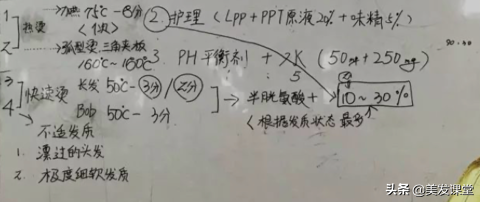 1
2
热烫
→加热75℃-8分 ②.护理(LPP+PPT原液20%+味精5%)
<1次>
→弧型烫 三角夹板
160℃~180℃
3. PH平衡剂+水(50ml+250ml)
3
4
快速烫
长发50℃-3分/2分
Bob 50℃-3分
→半胱氨酸+
10~30%
<根据发质状态 最多
不适发质
1. 漂过的头发
2. 极度细软发质
头条@美发课堂